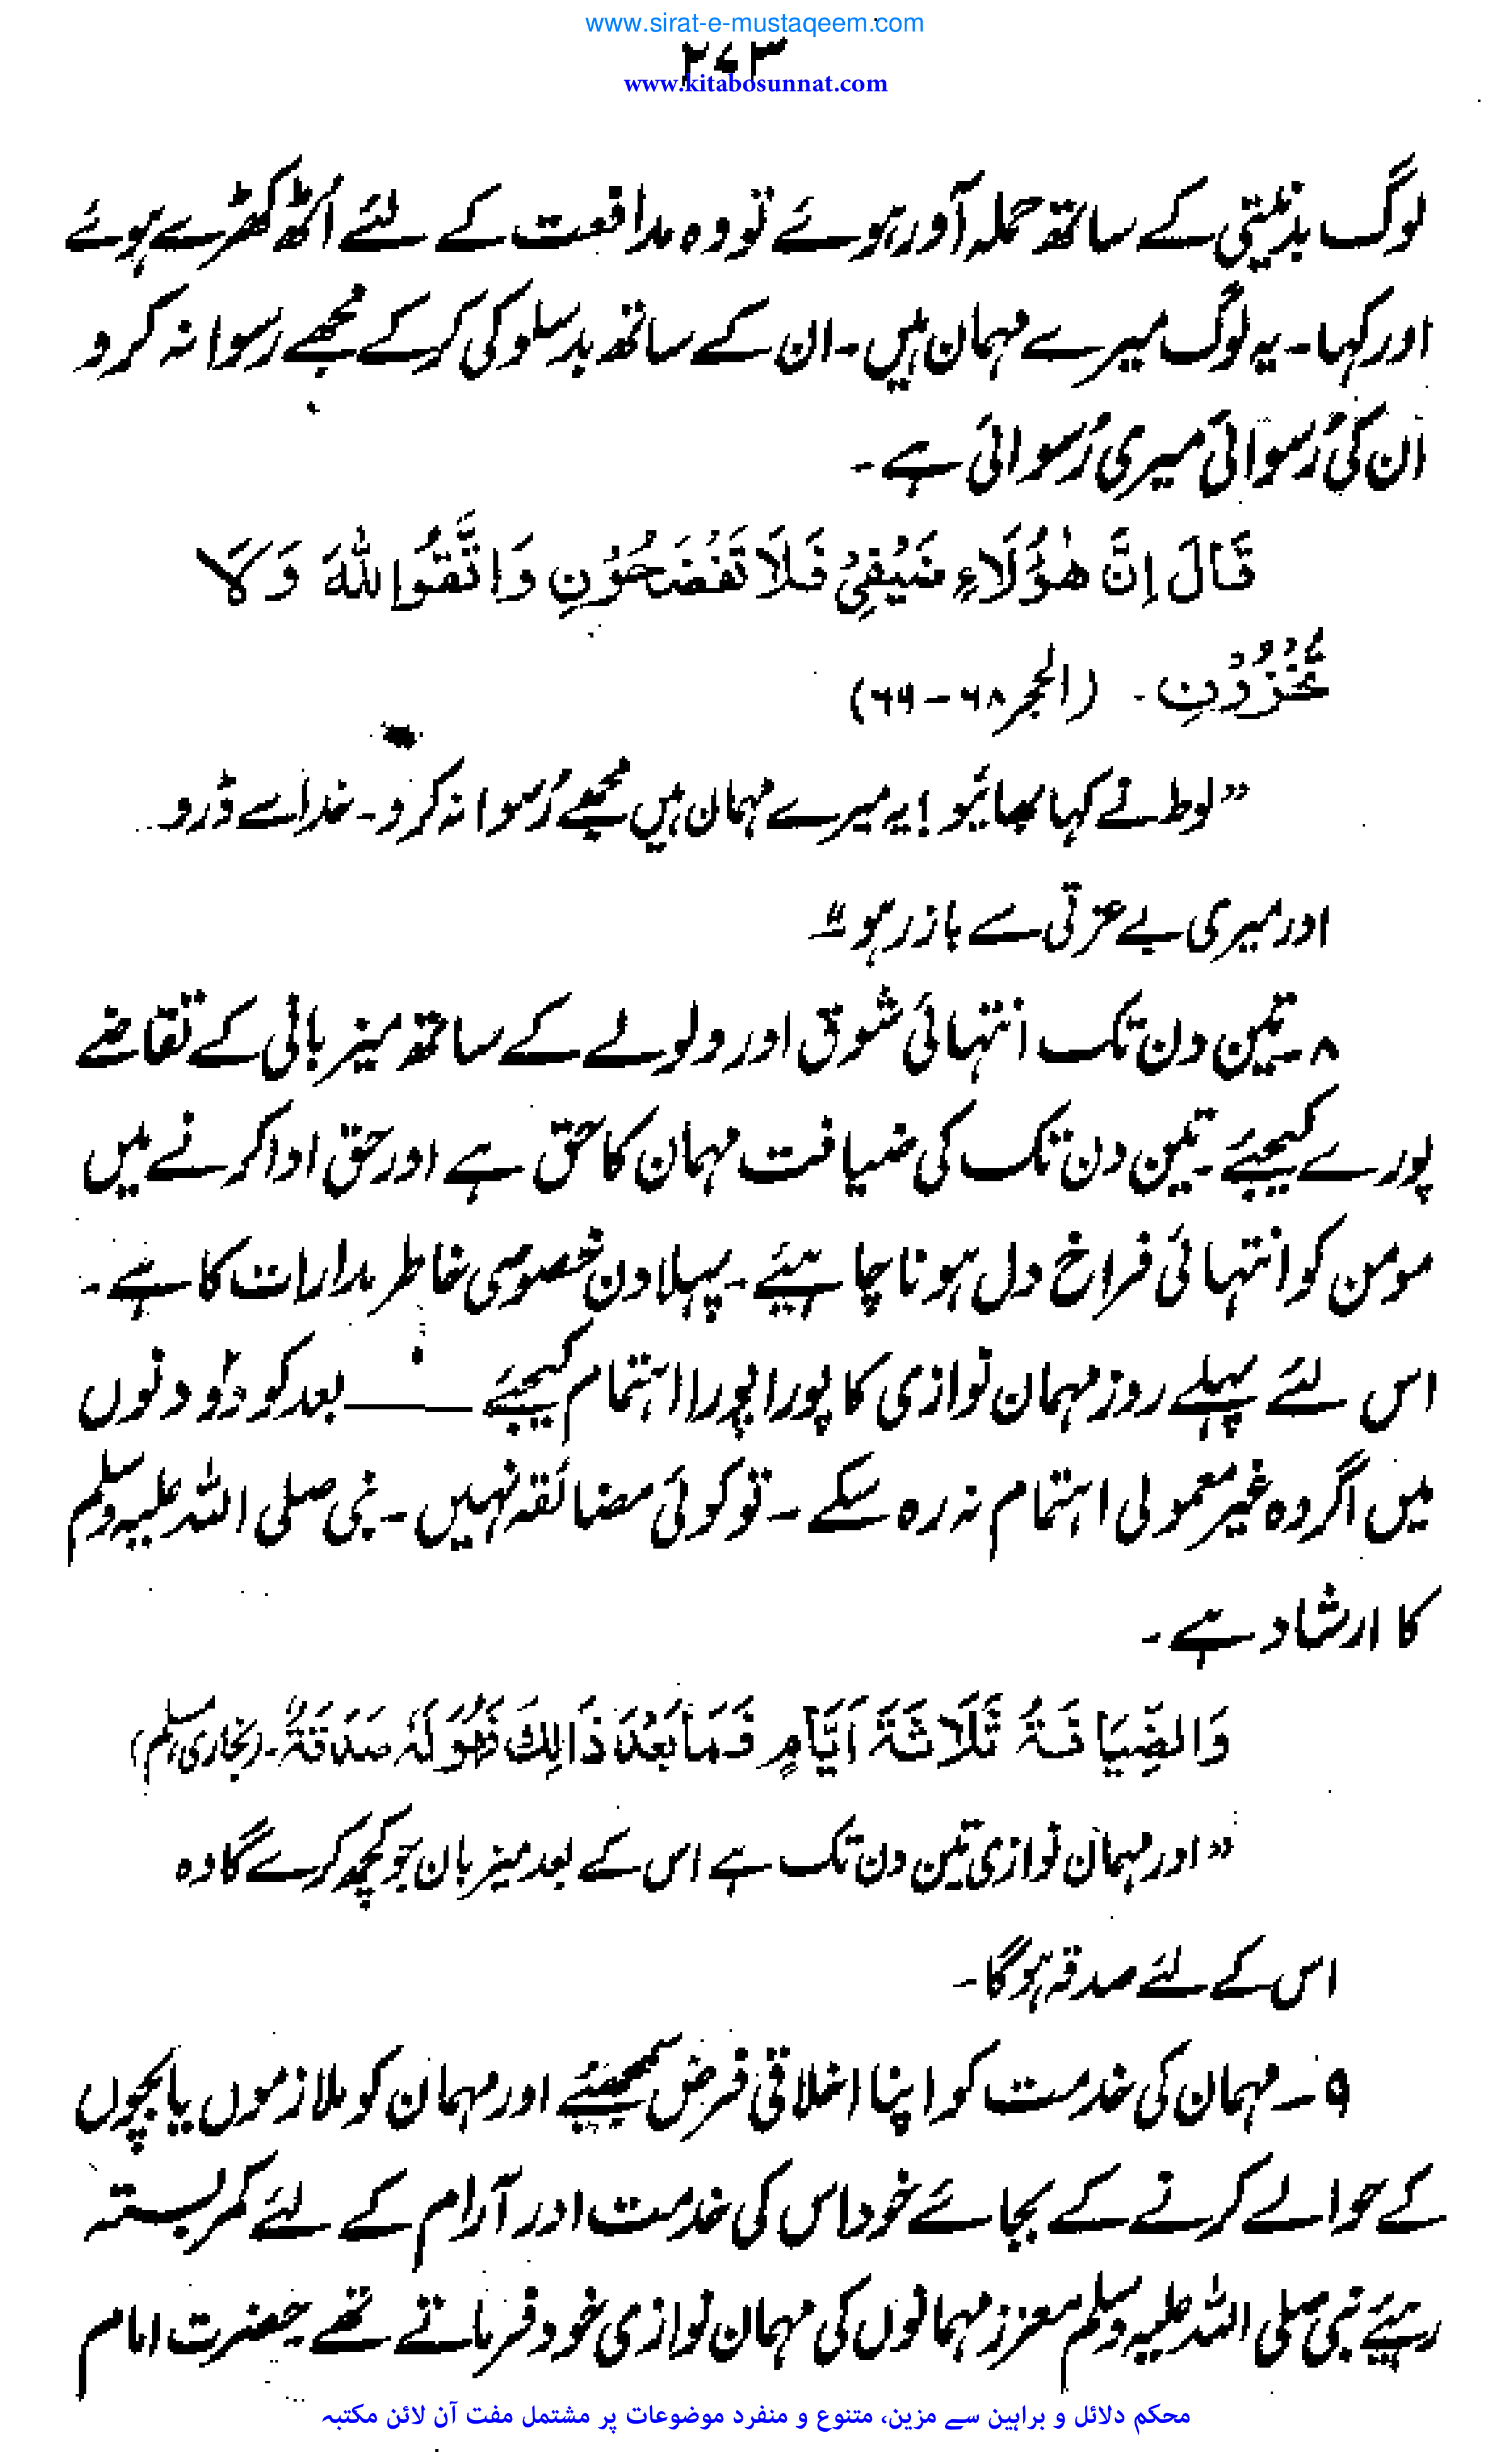 www.sirat-e-mustaqeem.com
۲۷۳
www.kitabosunnat.com
لوگ بدنیتی کے ساتھ حملہ آور ہوئے تو وہ مدافعت کے لئے اُٹھ کھڑے ہوئے
اور کہا۔ یہ لوگ میرے مہمان ہیں۔ ان کے ساتھ بدسلوکی کرکے مجھے رسوا نہ کرو
ان کی رُسوائی میری رُسوائی ہے۔
قَالَ اِنَّ هٰؤُلَاءِ ضَيْفِيْ فَلَا تَفْضَحُوْنِ وَاتَّقُوا اللّٰهَ وَلَا
تُخْزُوْنِ۔ (الحجر ۶۸-۶۹)
”لوط نے کہا بھائیو! یہ میرے مہمان ہیں مجھے رُسوا نہ کرو۔ خدا سے ڈرو
اور میری بے عزتی سے باز رہو“
۸۔ تین دن تک انتہائی شوق اور ولولے کے ساتھ میزبانی کے تقاضے
پورے کیجئے۔ تین دن تک کی ضیافت مہمان کا حق ہے اور حق ادا کرنے میں
مومن کو انتہائی فراخ دل ہونا چاہیئے۔ پہلا دن خصوصی خاطر مدارات کا ہے۔
اس لئے پہلے روز مہمان نوازی کا پورا پورا اہتمام کیجئے —— بعد کو دُو دنوں
میں اگر وہ غیر معمولی اہتمام نہ رہ سکے۔ تو کوئی مضائقہ نہیں۔ نبی صلی اللہ علیہ وسلم
کا ارشاد ہے۔
وَالضِّيَافَةُ ثَلَاثَةَ اَيَّامٍ فَمَا بَعْدَ ذَالِكَ فَهُوَ لَهٗ صَدَقَةٌ۔ (بخاری، مسلم)
”اور مہمان نوازی تین دن تک ہے اس کے بعد میزبان جو کچھ کرے گا وہ
اس کے لئے صدقہ ہوگا۔
۹۔ مہمان کی خدمت کو اپنا اخلاقی فرض سمجھیئے اور مہمان کو ملازموں یا بچوں
کے حوالے کرنے کے بجائے خود اس کی خدمت اور آرام کے لئے کمر بستہ
رہیئے نبی صلی اللہ علیہ وسلم معزز مہمانوں کی مہمان نوازی خود فرماتے تھے۔ حضرت امام
محکم دلائل و براہین سے مزین، متنوع و منفرد موضوعات پر مشتمل مفت آن لائن مکتبہ